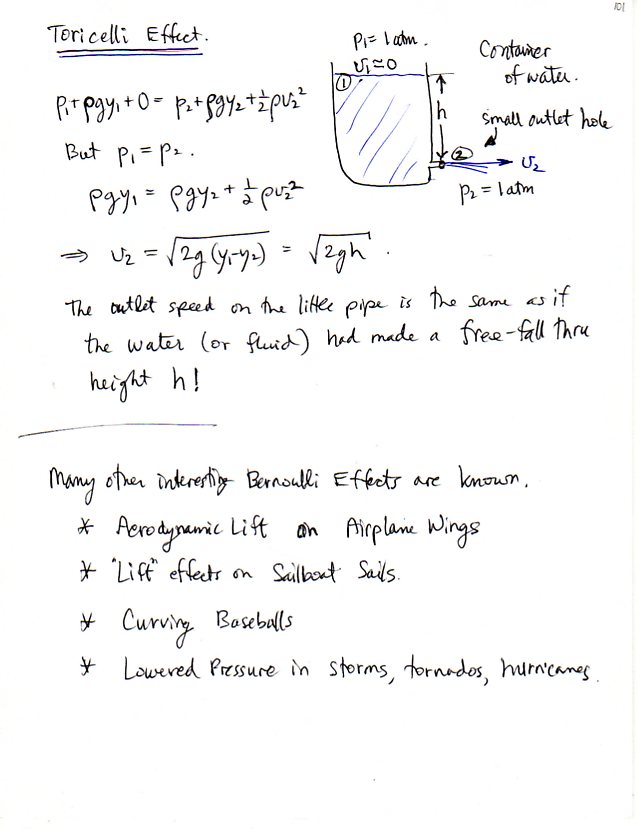 101
Toricelli Effect.
p₁ = 1 atm.
v₁ ≃ 0
①
h
Container
of water.
small outlet hole
②
v₂
p₂ = 1 atm
p₁ + ρgy₁ + 0 = p₂ + ρgy₂ + ½ρv₂²
But p₁ = p₂.
ρgy₁ = ρgy₂ + ½ ρv₂²
⇒ v₂ = √(2g(y₁-y₂)) = √(2gh) .
The outlet speed on the little pipe is the same as if
the water (or fluid) had made a free-fall thru
height h!
Many other interesting Bernoulli Effects are known.
* Aerodynamic Lift on Airplane Wings
* "Lift" effects on Sailboat Sails.
* Curving Baseballs
* Lowered Pressure in storms, tornados, hurricanes.